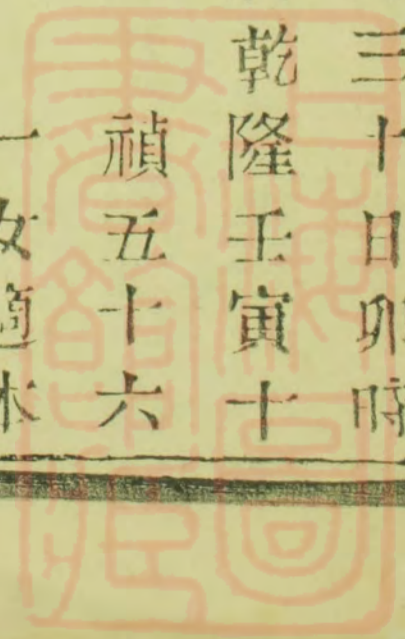 三十日卯時
乾隆壬寅十
禎五十六
一女適木